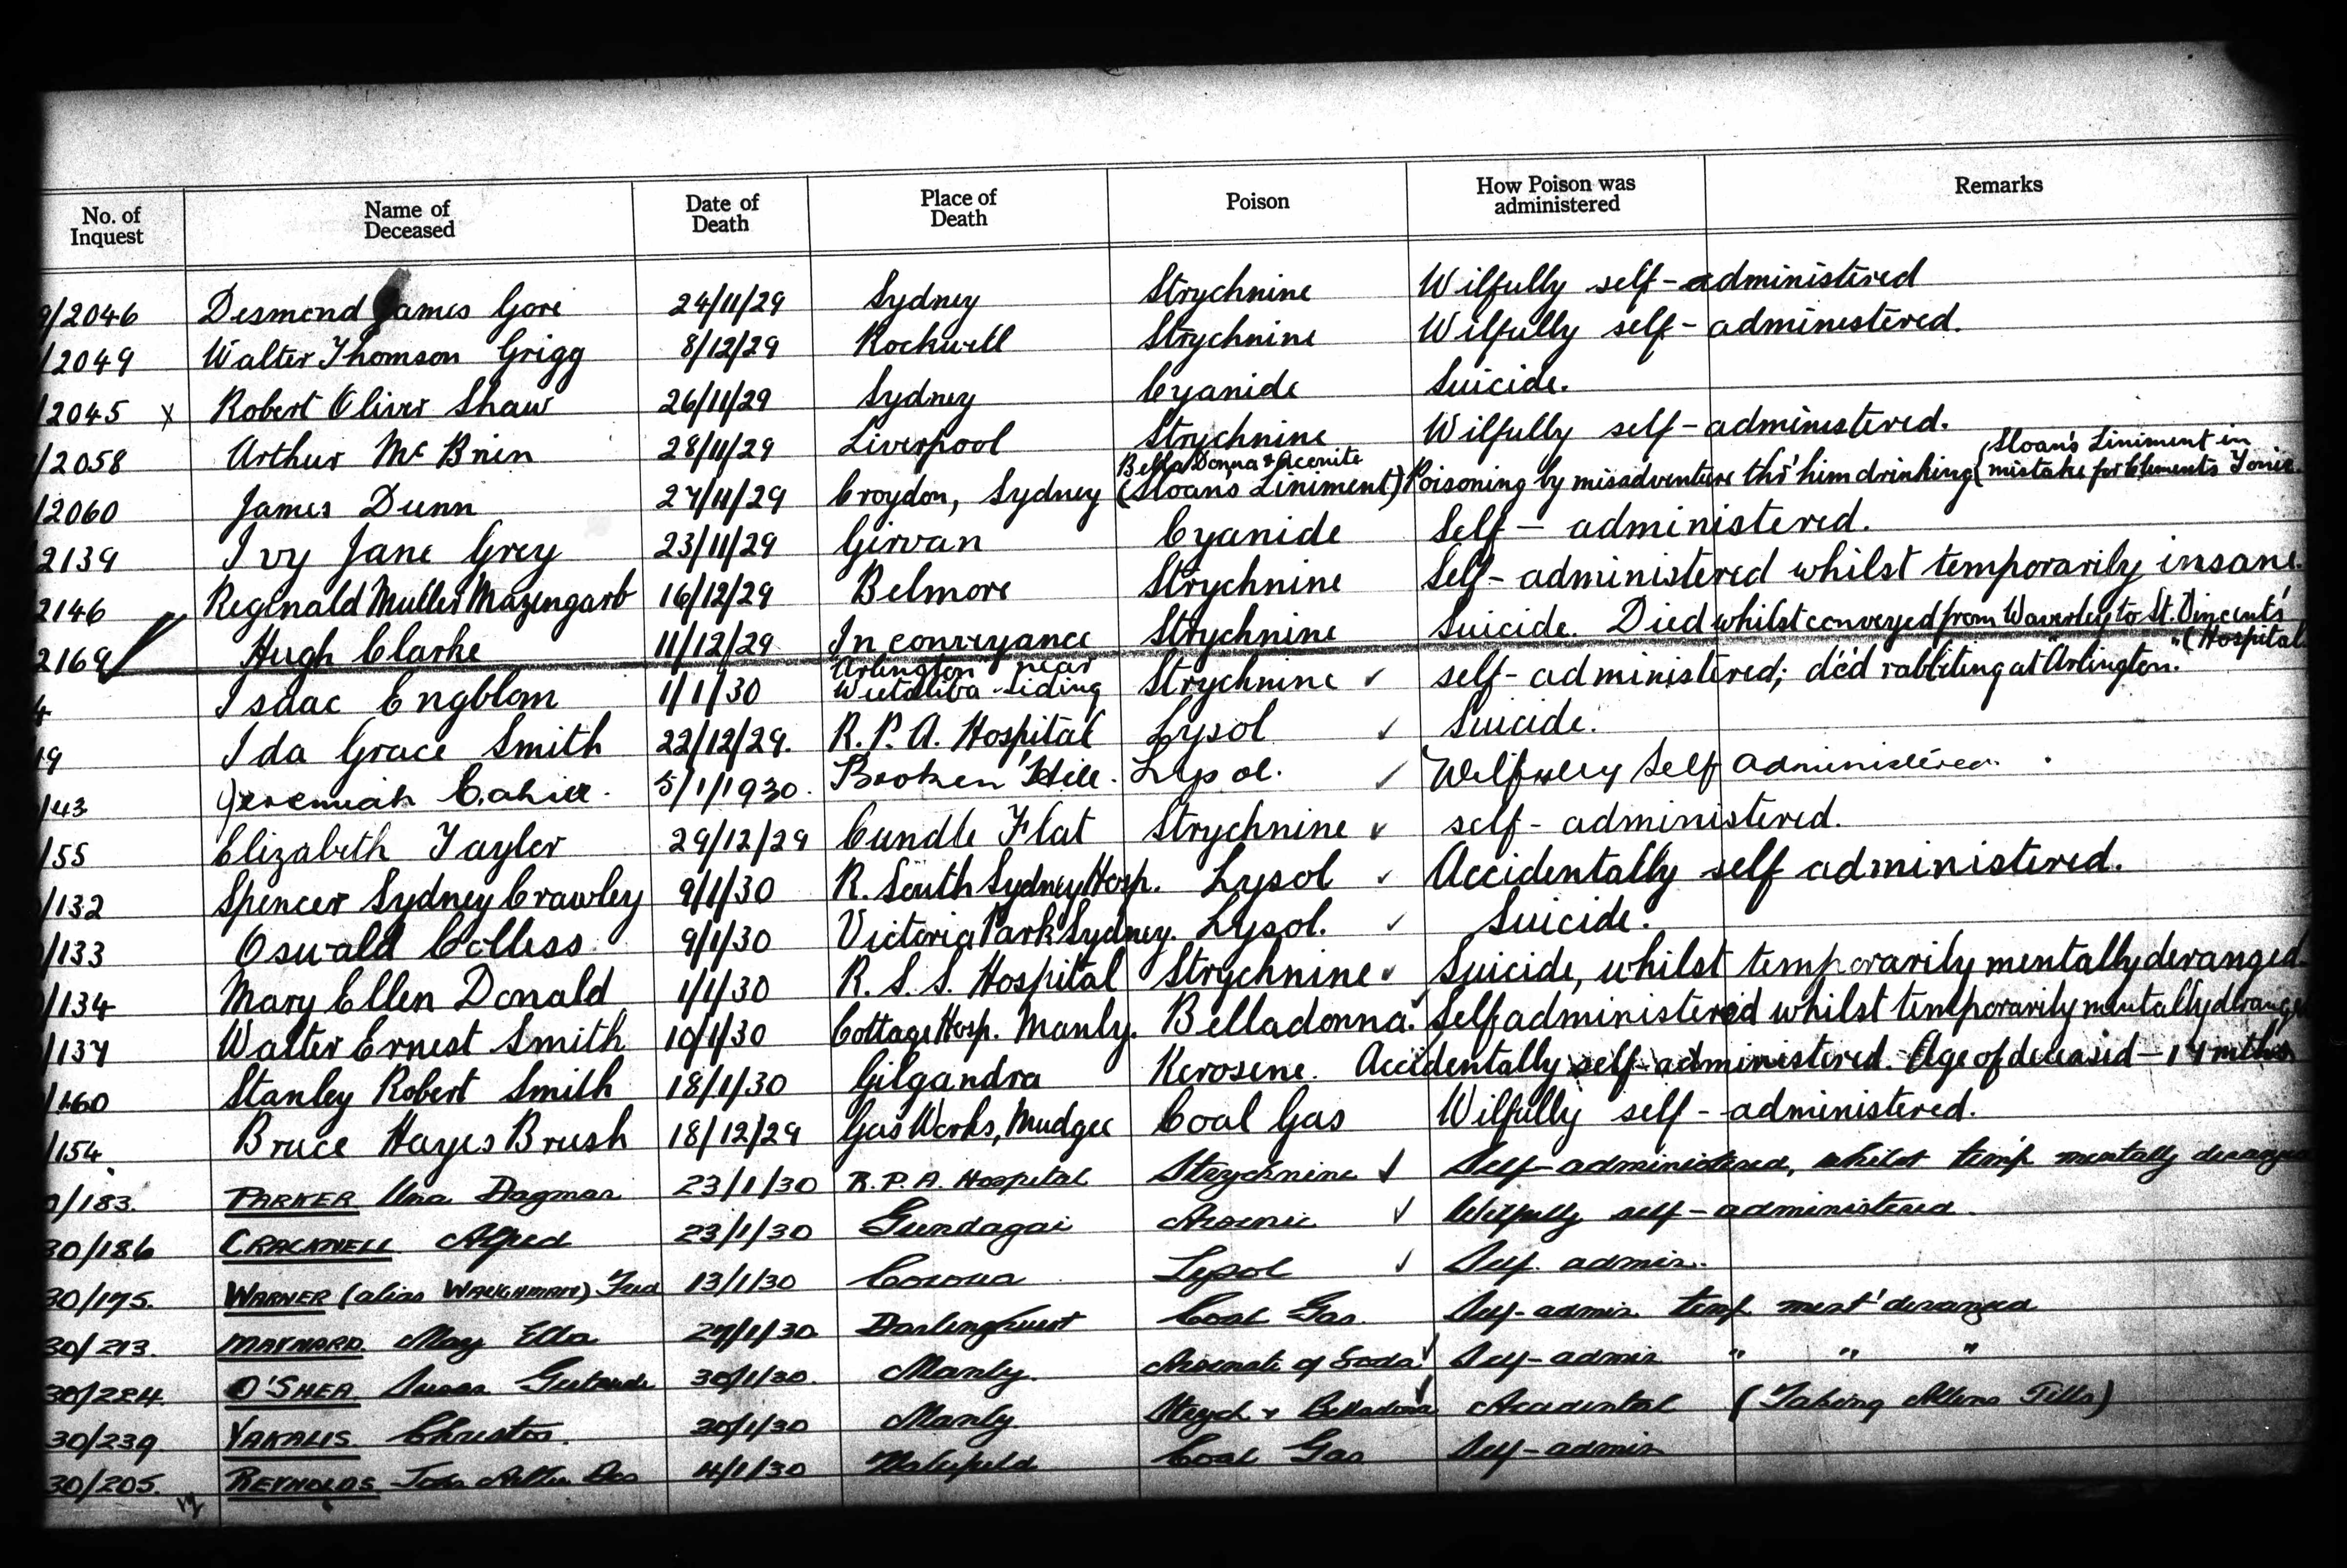 No. of Inquest Name of Deceased Date of Death Place of Death Poison How Poison was administered Remarks
9/2046 Desmond James Gore 24/11/29 Sydney Strychnine Wilfully self-administered
/2049 Walter Thomson Grigg 8/12/29 Rockwell Strychnine Wilfully self-administered.
/2045 x Robert Oliver Shaw 26/11/29 Sydney Cyanide Suicide.
/2058 Arthur McBrien 28/11/29 Liverpool Strychnine Wilfully self-administered.
/2060 James Dunn 27/11/29 Croydon, Sydney Bella Donna & Aconite (Sloan's Liniment) Poisoning by misadventure thro' him drinking (Sloan's Liniment in mistake for Clements Tonic.
2139 Ivy Jane Grey 23/11/29 Girvan Cyanide Self-administered.
2146 Reginald Muller Mazengarb 16/12/29 Belmore Strychnine Self-administered whilst temporarily insane.
2169 Hugh Clarke 11/12/29 In conveyance Strychnine Suicide. Died whilst conveyed from Waverley to St. Vincents' (Hospital
4 Isaac Engblom 1/1/30 Arlington near Weetaliba Siding Strychnine ✓ self-administered; dec'd rabbiting at "Arlington."
19 Ida Grace Smith 22/12/29. R.P.A. Hospital Lysol ✓ Suicide.
/43 Jeremiah Cahill. 5/1/1930. Broken Hill. Lysol. ✓ Wilfully Self administered.
/55 Elizabeth Tayler 29/12/29 Cundle Flat Strychnine ✓ self-administered.
/132 Spencer Sydney Crawley 9/1/30 R. South Sydney Hosp. Lysol ✓ Accidentally self administered.
/133 Oswald Colless 9/1/30 Victoria Park Sydney. Lysol. ✓ Suicide.
/134 Mary Ellen Donald 1/1/30 R.S.S. Hospital Strychnine ✓ Suicide, whilst temporarily mentally deranged.
/137 Walter Ernest Smith 10/1/30 Cottage Hosp. Manly. Belladonna. ✓ Self administered whilst temporarily mentally deranged
/160 Stanley Robert Smith 18/1/30 Gilgandra Kerosene. Accidentally self-administered. Age of deceased - 17 mths
/154 Bruce Hayes Brush 18/12/29 Gas Works, Mudgee Coal Gas Wilfully self-administered.
/183. PARKER Una Dagmar 23/1/30 R.P.A. Hospital Strychnine ✓ Self-administered, whilst temp mentally deranged
30/186 CRACKNELL Alfred 23/1/30 Gundagai Arsenic ✓ Wilfully self-administered.
30/175. WARNER (alias WAUGHMAN) Fred 13/1/30 Corowa Lysol ✓ Self. admin.
30/213. MAYNARD. May Ella 27/1/30 Darlinghurst Coal Gas. Self-admin. temp. ment' deranged
30/224. O'SHEA Susan Gertrude 30/1/30. Manly. Arsenate of Soda ✓ Self-admin " " "
30/239 YAKALIS. Christos. 30/1/30 Manly Strych & Belladona ✓ Accidental (Taking Allens Pills)
30/205. REYNOLDS John 4/1/30 Coal Gas Self-admin